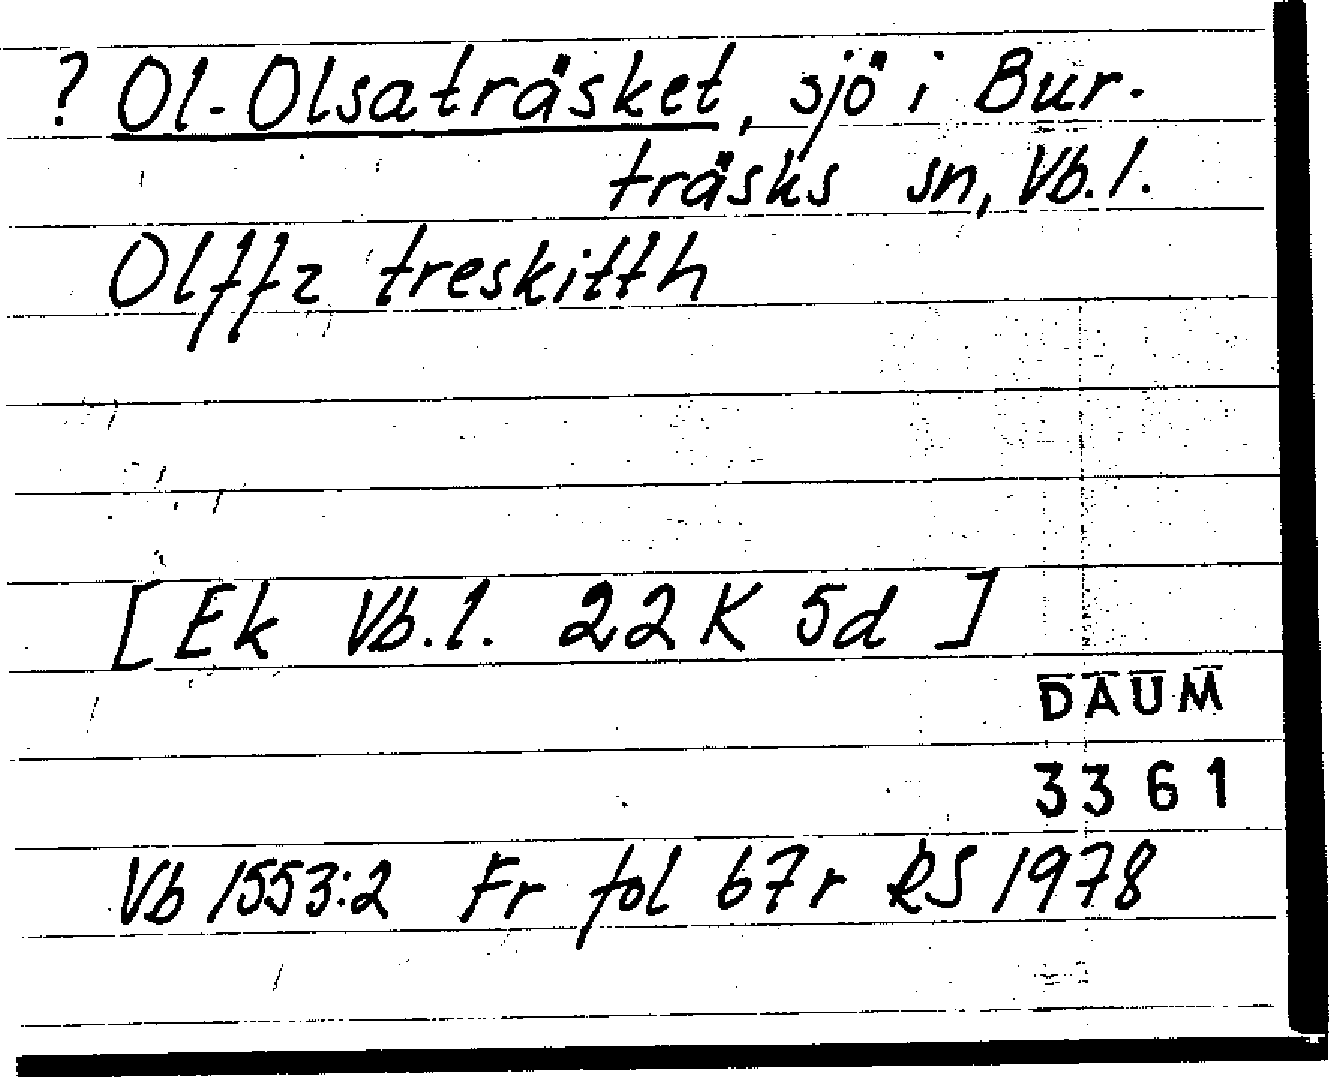 ? Ol-Olsaträsket, sjö i Bur-
träsks sn, Vb. l.
Olffz treskitth
[Ek Vb. l. 22 K 5d]
DAUM
3361
Vb 1553:2 Fr fol 67r RS 1978